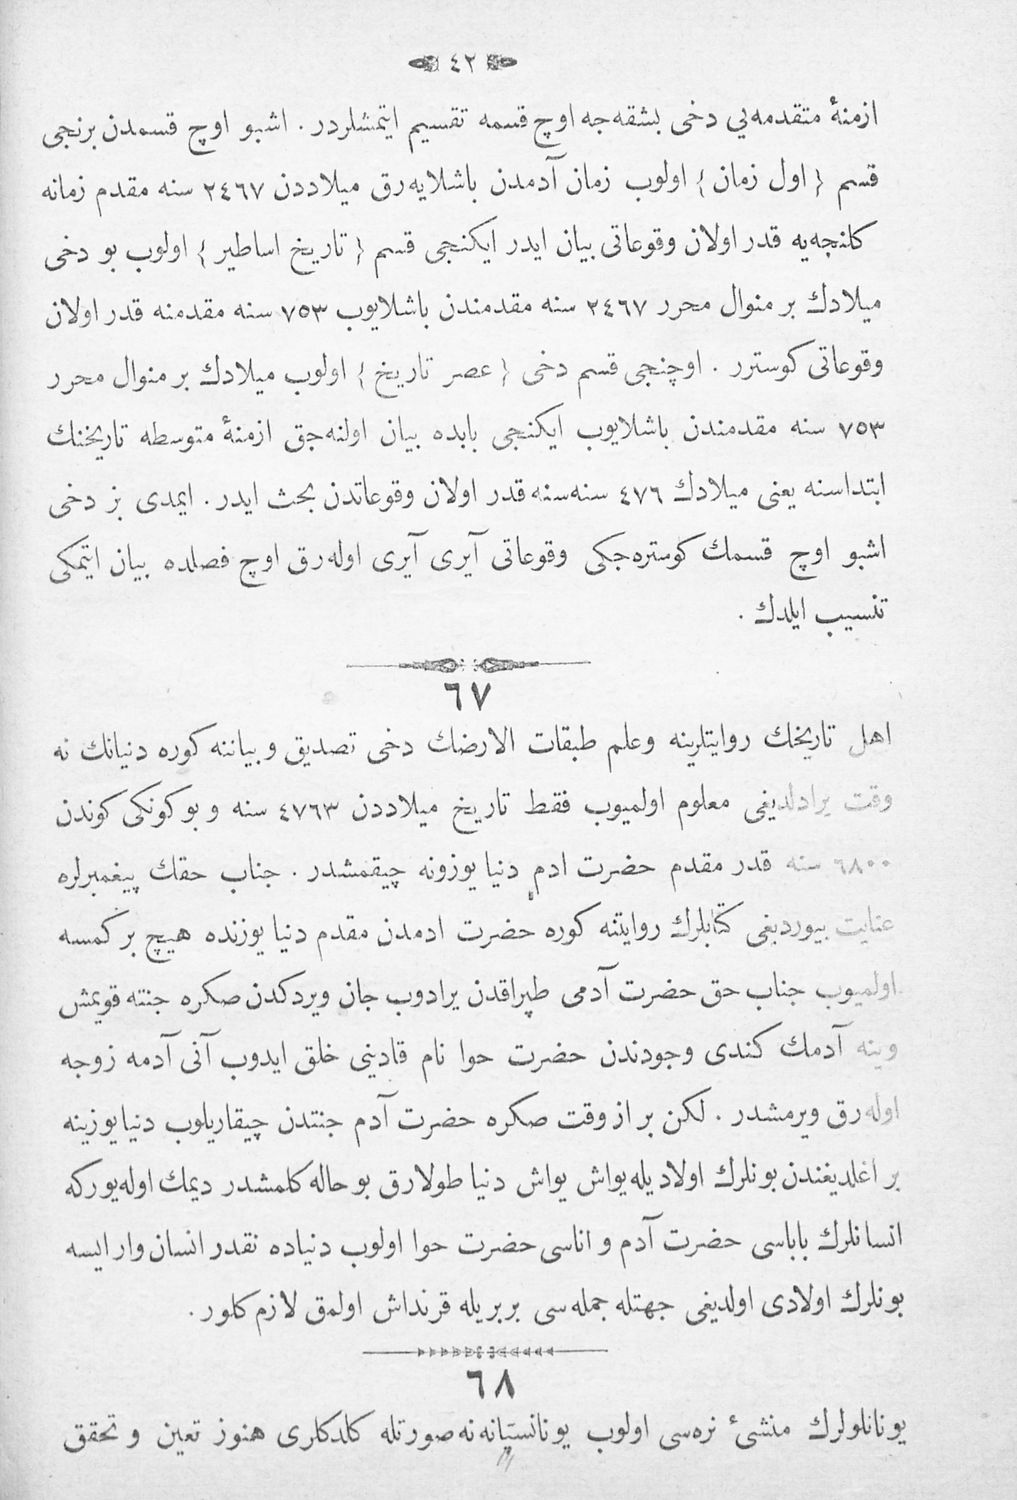 ٤٢
ازمنهٔ متقدمه‌یی دخی بشقه‌جه اوچ قسمه تقسیم ایتمشلردر . اشبو اوچ قسمدن برنجی
قسم { اول زمان } اولوب زمان آدمدن باشلایه‌رق میلاددن ٢٤٦٧ سنه مقدم زمانه
کلنجه‌یه قدر اولان وقوعاتی بیان ایدر ایکنجی قسم { تاریخ اساطیر } اولوب بو دخی
میلادك بر منوال محرر ٢٤٦٧ سنه مقدمندن باشلایوب ٧٥٣ سنه مقدمنه قدر اولان
وقوعاتی کوسترر . اوچنجی قسم دخی { عصر تاریخ } اولوب میلادك بر منوال محرر
٧٥٣ سنه مقدمندن باشلایوب ایکنجی بابده بیان اولنه‌جق ازمنهٔ متوسطه تاریخنك
ابتداسنه یعنی میلادك ٤٧٦ سنه‌سنه قدر اولان وقوعاتدن بحث ایدر . ایمدی بز دخی
اشبو اوچ قسمك کوستره‌جکی وقوعاتی آیری آیری اوله‌رق اوچ فصلده بیان ایتمکی
تنسیب ایلدك .
٦٧
اهل تاریخك روایتلرینه وعلم طبقات الارضك دخی تصدیق و بیاننه کوره دنیانك نه
وقت یرادلدیغی معلوم اولمیوب فقط تاریخ میلاددن ٤٧٦٣ سنه و بو کونکی کوندن
٦٨٠٠ سنه قدر مقدم حضرت ادم دنیا یوزونه چیقمشدر . جناب حقك پیغمبرلره
عنایت بیوردیغی کتابلرك روایتنه کوره حضرت ادمدن مقدم دنیا یوزنده هیچ بر کمسه
اولمیوب جناب حق حضرت آدمی طپراقدن یرادوب جان ویردکدن صکره جنته قویمش
وینه آدمك کندی وجودندن حضرت حوا نام قادینی خلق ایدوب آنی آدمه زوجه
اوله‌رق ویرمشدر . لکن بر از وقت صکره حضرت آدم جنتدن چیقاریلوب دنیا یوزینه
بر اغلدیغندن بونلرك اولادیله یواش یواش دنیا طولارق بو حاله کلمشدر دیمك اوله‌یورکه
انسانلرك باباسی حضرت آدم و اناسی حضرت حوا اولوب دنیاده نقدر انسان وار ایسه
بونلرك اولادی اولدیغی جهتله جمله‌سی بربریله قرنداش اولمق لازم کلور .
٦٨
یونانلولرك منشئ نره‌سی اولوب یونانستانه نه صورتله کلدکلری هنوز تعین و تحقق